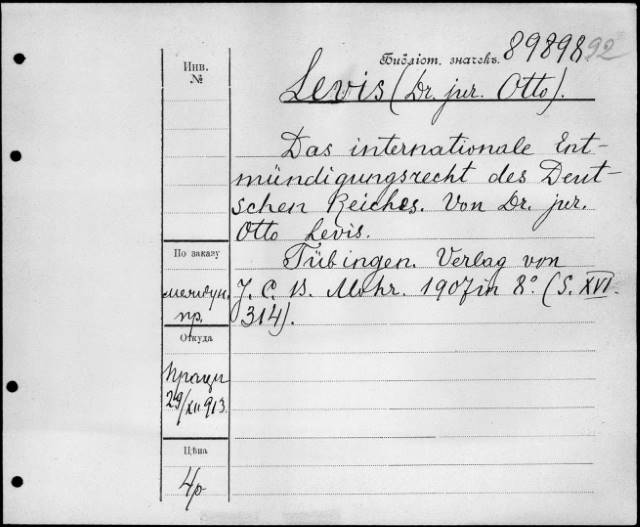 Библіот. значекъ. 89898
92
Инв.
№
Levis (Dr. jur. Otto).
Das internationale Ent-
mündigungsrecht des Deut-
schen Reiches. Von Dr. jur.
Otto Levis.
Tübingen. Verlag von
J. C. B. Mohr. 1907 in 8° (S. XVI.
314).
По заказу
междун.
пр.
Откуда
29/XII 913.
Цѣна
4р